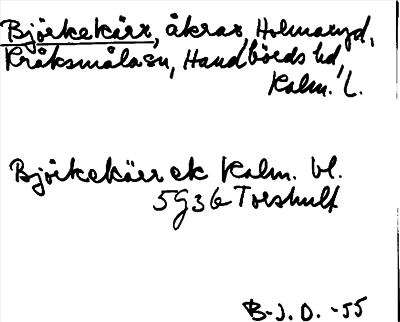 Björkekärr, åkrar, Holmaryd,
Kråksmåla sn, Handbörds hd,
Kalm. l.
Björkekärr ek Kalm. bl.
5G3b Torshult
B-J. O. -55